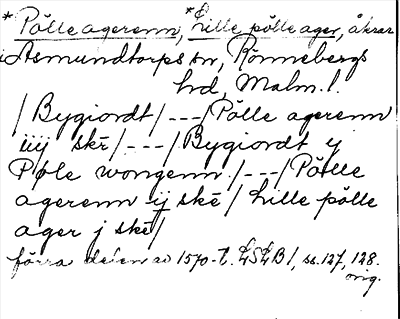 *Pölleagerenn, *Lille pölle ager, åkrar
i Asmundtorps sn, Rönnebergs
hd, Malm.l.
/Bygiordt/---/Pölle agerenn
iiij skē/---/Bygiordt y
Pøle wongenn/---/Pölle
agerenn ij skē/Lille pölle
ager j skē/
förra delen av 1570-t. LSLB1, ss. 127, 128.
orig.